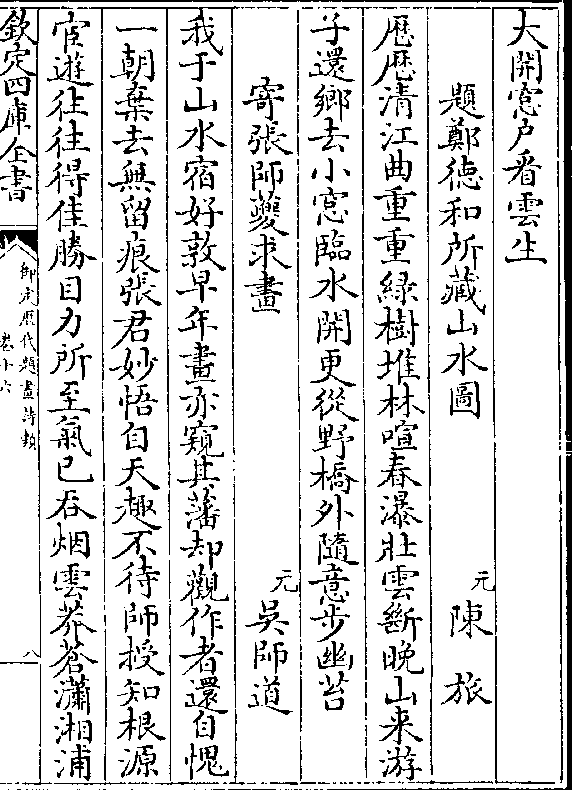 大開窓户看雲生
題鄭徳和所藏山水圖
元 陳旅
厯厯清江曲重重緑樹堆林喧春瀑壯雲斷晚山来游
子還鄉去小窓臨水開更從野橋外隨意步幽苔
寄張師夔求畫
元 吳師道
我于山水宿好敦早年畫亦窺其藩却觀作者還自愧
一朝棄去無留痕張君妙悟自天趣不待師授知根源
宦遊往往得佳勝目力所至氣已吞烟雲莽蒼瀟湘浦
欽定四庫全書
御定厯代題畫詩類
卷十六
八